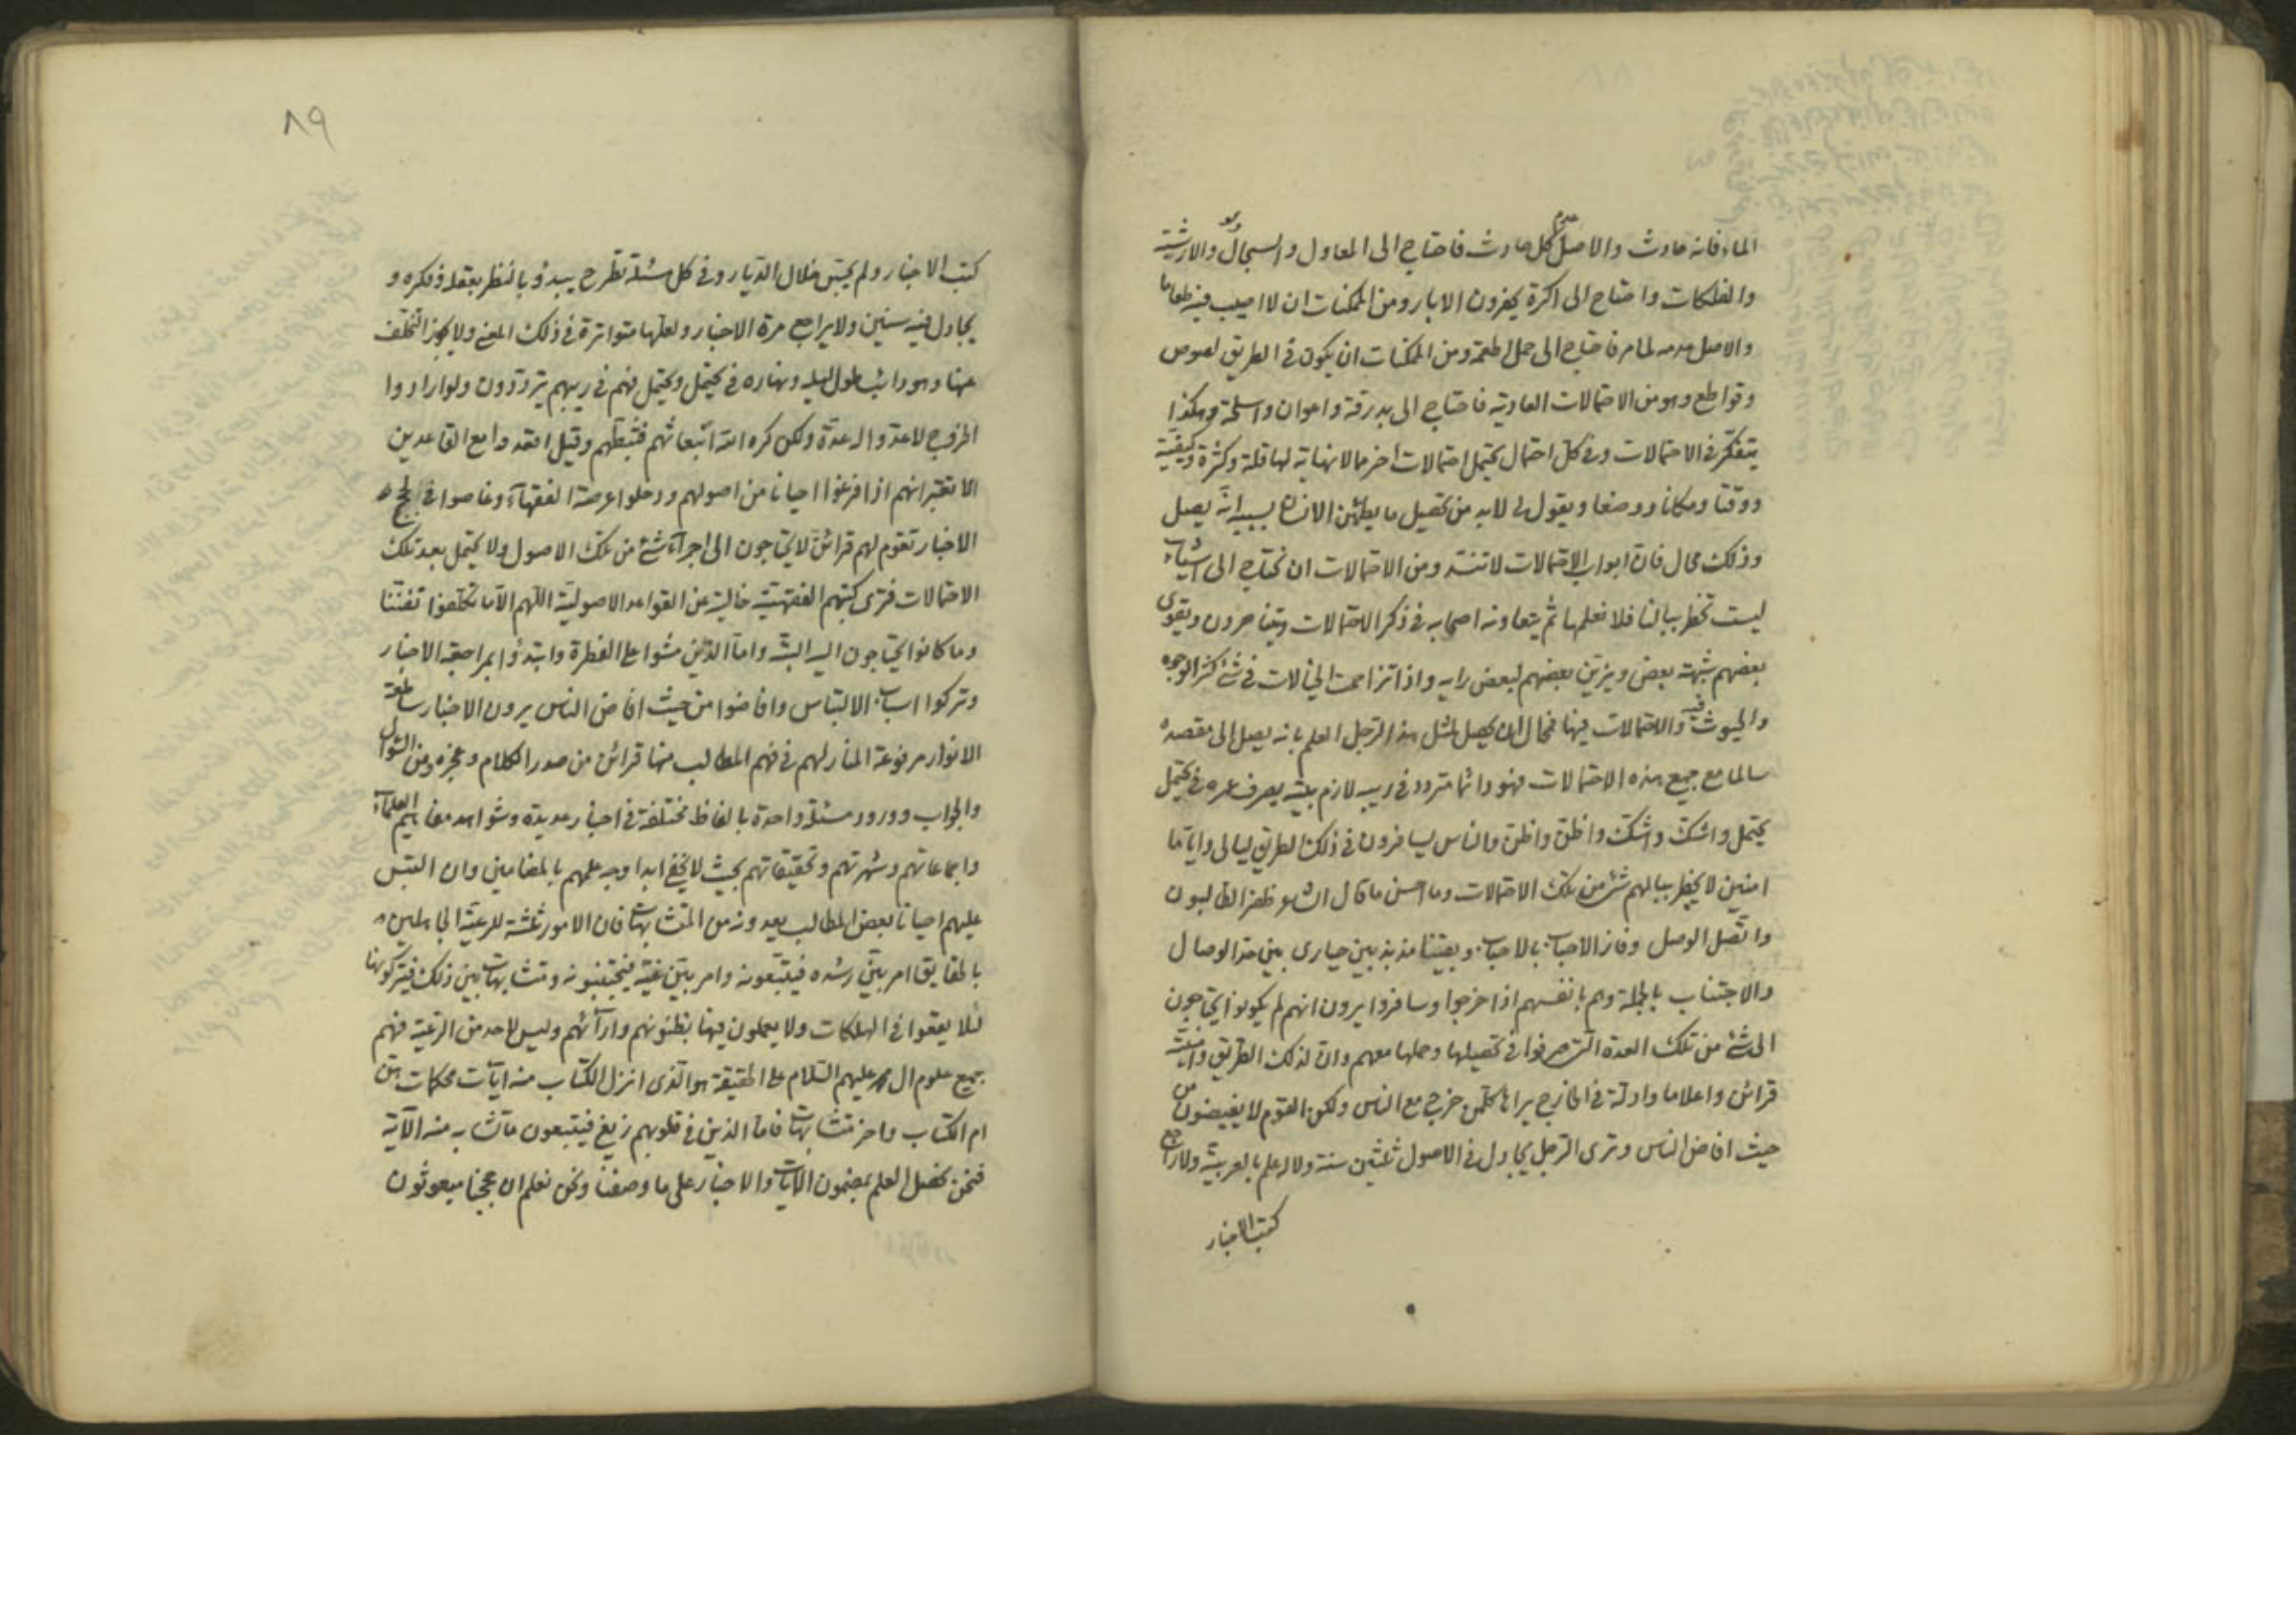 الماء فانه حادث والاصل عدم كل حادث فاحتاج الى المعاول والسجال والدلو والارشية
والفلكات واحتاج الى اكرة يحفرون الابار ومن الممكنات ان لا اصيب فيه طعاما
والاصل عدمه لما مر فاحتاج الى حمل اطعمة ومن الممكنات ان يكون في الطريق لصوص
وقواطع وهو من الاحتمالات العادية فاحتاج الى بدرقة واعوان واسلحة وهكذا
يتفكر في الاحتمالات وفي كل احتمال يحتمل احتمالات اخر مالا نهاية لها قلة وكثرة وكيفية
ووقتا ومكانا ووضعا ويقول لي لابد من تحصيل ما يطمئن الانسان بسببه انه يصل
وذلك محال فان ابواب الاحتمالات لا تنسد ومن الاحتمالات ان نحتاج الى اشياء
ليست تخطر ببالنا فلا نعلمها ثم يتعاونه اصحابه في ذكر الاحتمالات ويتناصرون ويقوى
بعضهم شبهة بعض ويزين بعضهم لبعض رايه واذا تزاحمت الخيالات في شئ كثر الوجوه
والحيوث فيه والاحتمالات فيها فمحال ان يحصل لمثل هذا الرجل العلم بانه يصل الى مقصده
سالما مع جميع هذه الاحتمالات فهو دائما متردد في ريبه لازم بيته يصرف عمره في يحتمل
يحتمل واشك واشك واظن واظن والناس يسافرون في ذلك الطريق ليالي واياما
امنين لا يخطر ببالهم شئ من تلك الاحتمالات وما احسن ما قال الشاعر ظفر الطالبون
واتصل الوصل وفاز الاحباب بالاحباب وبقينا مذبذبين حيارى بين حد الوصال
والاجتناب بالجملة وهم بانفسهم اذا خرجوا وسافروا يرون انهم لم يكونوا يحتاجون
الى شئ من تلك العدة التي صرفوا في تحصيلها وحملها معهم وان لذلك الطريق
قرائن واعلاما وادلة في الخارج يراها كل من خرج مع الناس ولكن القوم لا يفيضون من
حيث افاض الناس وترى الرجل يجادل في الاصول ثلثين سنة ولا له علم بالعربية ولا راجع
كتب الاخبار
٨٩
كتب الاخبار ولم يجس خلال الديار وفي كل مسئلة تطرح يبدؤ بالنظر بعقله وفكره و
يجادل فيه سنين ولا يراجع مرة الاخبار ولعلها متواترة في ذلك المعنى ولا يجوز التخلف
عنها وهو دائب طول ليله ونهاره في يحتمل ويحتمل فهم في ريبهم يترددون ولو ارادوا
الخروج لاعدوا له عدة ولكن كره الله انبعاثهم فثبطهم وقيل اقعدوا مع القاعدين
الا تعتبر انهم اذا فرغوا احيانا من اصولهم ودخلوا عرصة الفقهاء وغاصوا في لجج
الاخبار تقوم لهم قرائن لا يحتاجون الى اجراء شئ من تلك الاصول ولا يحتمل بعد تلك
الاحتمالات فترى كتبهم الفقهية خالية عن القواعد الاصولية اللهم الا ما تكلفوا تفننا
وما كانوا يحتاجون اليه البتة واما الذين مشوا على الفطرة وابتدؤا بمراجعة الاخبار
وتركوا اسباب الالتباس وافاضوا من حيث افاض الناس يرون الاخبار ساطعة
الانوار مرفوعة المنار لهم في فهم المطالب منها قرائن من صدر الكلام وعجزه ومن السؤال
والجواب وورود مسئلة واحدة بالفاظ مختلفة في اخبار عديدة وشواهد مفاهيم العلماء
واجماعاتهم وشهرتهم وتحقيقاتهم بحيث لا يخفى ابدا وجه علمهم بالمضامين وان التبس
عليهم احيانا بعض المطالب يعدونه من المتشابهات فان الامور ثلثة للرعية الجاهلين
بالحقايق امر بين رشده فيتبعونه وامر بين غيه فيجتنبونه ومتشابهات بين ذلك فيتركونها
لئلا يقعوا في الهلكات ولا يعملون فيها بظنونهم وارائهم وليس لاحد من الرعية فهم
جميع علوم ال محمد عليهم السلام على الحقيقة هو الذى انزل الكتاب منه ايات محكمات هن
ام الكتاب واخر متشابهات فاما الذين في قلوبهم زيغ فيتبعون ما تشابه منه الآية
فنحن نحصل العلم بمضمون الايات والاخبار على ما وصفنا ونحن نعلم ان حججنا مبعوثون